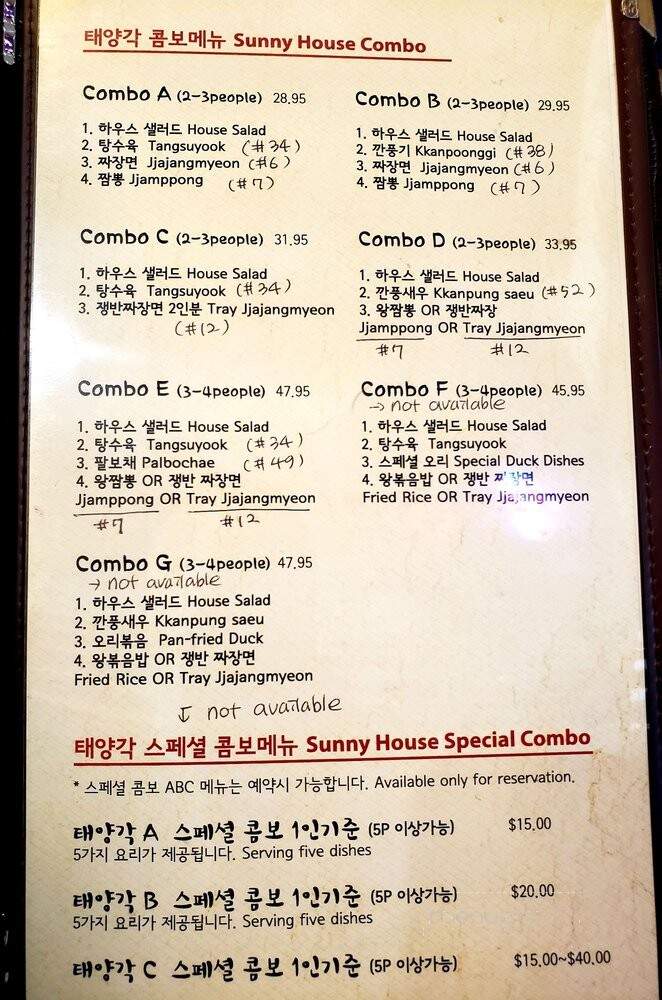 태양각 콤보메뉴 Sunny House Combo
Combo A (2-3people) 28.95
1. 하우스 샐러드 House Salad
2. 탕수육 Tangsuyook (#34)
3. 짜장면 Jjajangmyeon (#6)
4. 짬뽕 Jjamppong (#7)
Combo B (2-3people) 29.95
1. 하우스 샐러드 House Salad
2. 깐풍기 Kkanpoonggi (#38)
3. 짜장면 Jjajangmyeon (#6)
4. 짬뽕 Jjamppong (#7)
Combo C (2-3people) 31.95
1. 하우스 샐러드 House Salad
2. 탕수육 Tangsuyook (#34)
3. 쟁반짜장면 2인분 Tray Jjajangmyeon
(#12)
Combo D (2-3people) 33.95
1. 하우스 샐러드 House Salad
2. 깐풍새우 Kkanpung saeu (#52)
3. 왕짬뽕 OR 쟁반짜장
Jjamppong OR Tray Jjajangmyeon
#7 #12
Combo E (3-4people) 47.95
1. 하우스 샐러드 House Salad
2. 탕수육 Tangsuyook (#34)
3. 팔보채 Palbochae (#49)
4. 왕짬뽕 OR 쟁반 짜장면
Jjamppong OR Tray Jjajangmyeon
#7 #12
Combo F (3-4people) 45.95
→ not available
1. 하우스 샐러드 House Salad
2. 탕수육 Tangsuyook
3. 스페셜 오리 Special Duck Dishes
4. 왕볶음밥 OR 쟁반 짜장면
Fried Rice OR Tray Jjajangmyeon
Combo G (3-4people) 47.95
→ not available
1. 하우스 샐러드 House Salad
2. 깐풍새우 Kkanpung saeu
3. 오리볶음 Pan-fried Duck
4. 왕볶음밥 OR 쟁반 짜장면
Fried Rice OR Tray Jjajangmyeon
↓ not available
태양각 스페셜 콤보메뉴 Sunny House Special Combo
* 스페셜 콤보 ABC 메뉴는 예약시 가능합니다. Available only for reservation.
태양각 A 스페셜 콤보 1인기준 (5P 이상가능) $15.00
5가지 요리가 제공됩니다. Serving five dishes
태양각 B 스페셜 콤보 1인기준 (5P 이상가능) $20.00
5가지 요리가 제공됩니다. Serving five dishes
태양각 C 스페셜 콤보 1인기준 (5P 이상가능) $15.00~$40.00